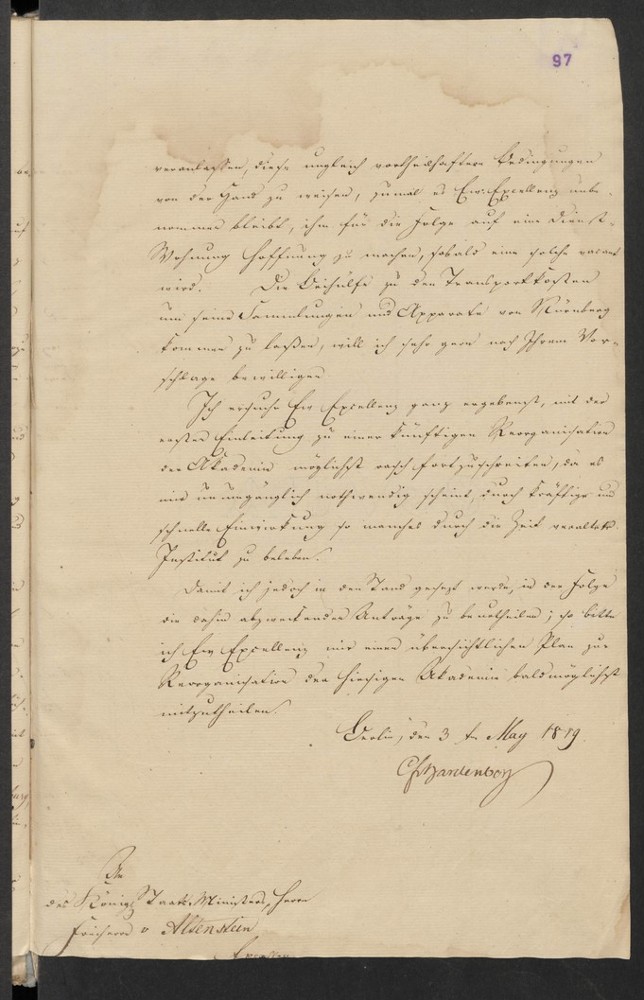 97
veranlassen, diese ungleich vortheilhaftere Bedingungen
von der Hand zu weisen, zumal es Ew. Excellenz unbe-
nommen bleibt, ihm für die Folge auf eine Dienst-
Wohnung Hoffnung zu machen, sobald eine solche vacant
wird. Die Beihülfe zu den Transportkosten
um seine Sammlungen und Apparate von Nürnberg
kommen zu laßen, will ich sehr gern nach Ihrem Vor-
schlage bewilligen.
Ich ersuche Ew Excellenz ganz ergebenst, mit der
ersten Einleitung zu einer künftigen Reorganisation
der Akademie möglichst rasch fortzuschreiten, da es
mir unumgänglich nothwendig scheint, durch kräftige und
schnelle Einwirkung so manches durch die Zeit veraltete
Institut zu beleben.
Damit ich jedoch in den Stand gesetzt werde, in der Folge
die dahin abzweckenden Anträge zu beurtheilen; so bitte
ich Ew Excellenz mir einen übersichtlichen Plan zur
Reorganisation der hiesigen Akademie baldmöglichst
mitzutheilen.
Berlin, den 3 ten May 1819.
CFvHardenberg
An
des Königl. Staats-Ministers, Herrn
Freiherrn v Altenstein
Excellenz